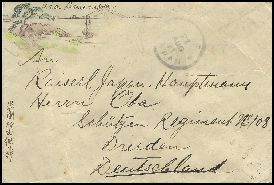 via America
An
Kaiserl. Japan. Hauptmann
Herrn Oba
Schützen Regiment No 108
Dresden
Deutschland